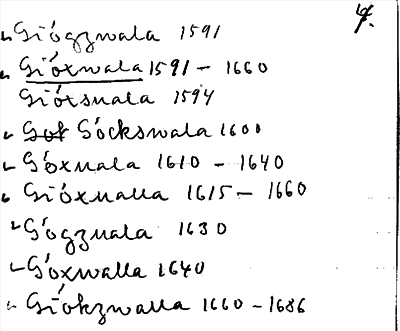 4.
Gióggwala 1591
Gióxwala 1591 - 1660
Gióxsuala 1594
Gok Góckswala 1600
Góxuala 1610 - 1640
Gióxualla 1615 - 1660
Gógzuala 1630
Góxwalla 1640
Giókzwalla 1660 - 1686